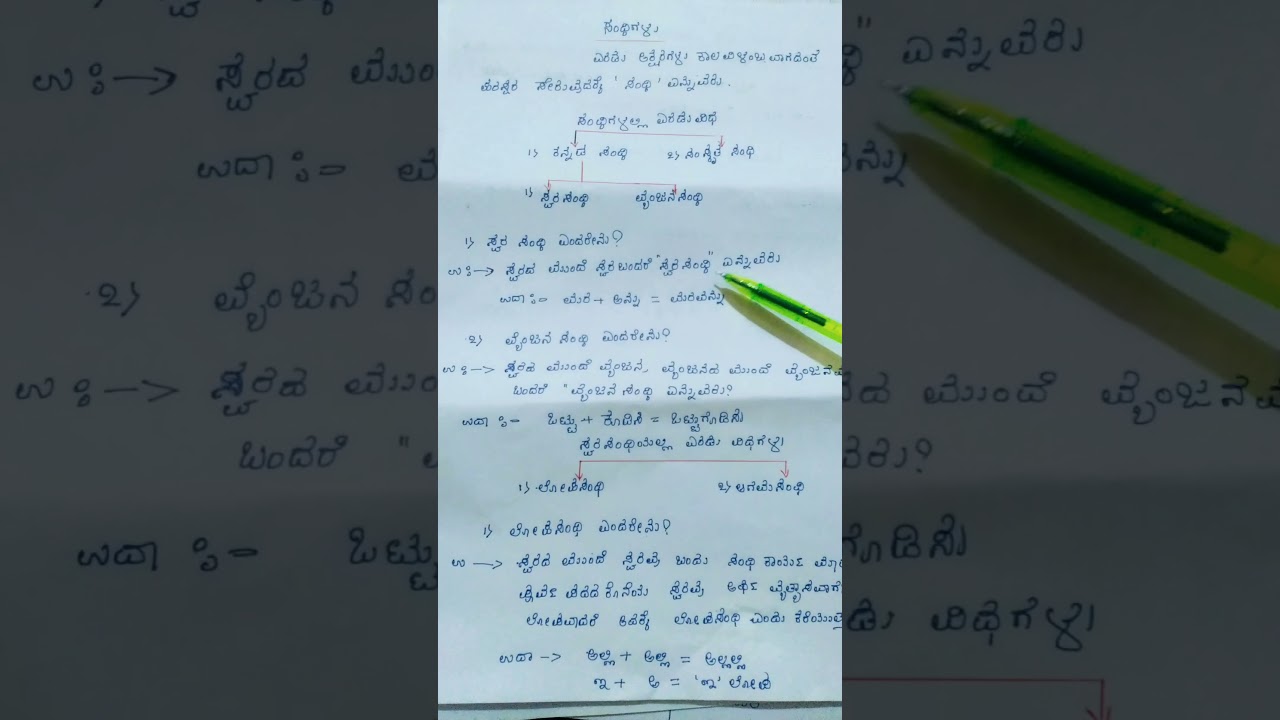 ಸಂಧಿಗಳು
ಎರಡು ಅಕ್ಷರಗಳು ಕಾಲವಿಳಂಬವಾಗದಂತೆ
ಪರಸ್ಪರ ಸೇರುವುದಕ್ಕೆ 'ಸಂಧಿ' ಎನ್ನುವರು.
ಸಂಧಿಗಳಲ್ಲಿ ಎರಡು ವಿಧ
1) ಕನ್ನಡ ಸಂಧಿ 2) ಸಂಸ್ಕೃತ ಸಂಧಿ
1) ಸ್ವರಸಂಧಿ ವ್ಯಂಜನಸಂಧಿ
1) ಸ್ವರ ಸಂಧಿ ಎಂದರೇನು?
ಉ :→ ಸ್ವರದ ಮುಂದೆ ಸ್ವರ ಬಂದರೆ "ಸ್ವರಸಂಧಿ" ಎನ್ನುವರು
ಉದಾ :- ಮರ + ಅನ್ನು = ಮರವನ್ನು
2) ವ್ಯಂಜನ ಸಂಧಿ ಎಂದರೇನು?
ಉ :→ ಸ್ವರದ ಮುಂದೆ ವ್ಯಂಜನ, ವ್ಯಂಜನದ ಮುಂದೆ ವ್ಯಂಜನವು
ಬಂದರೆ "ವ್ಯಂಜನ ಸಂಧಿ ಎನ್ನುವರು?
ಉದಾ :- ಒಟ್ಟು + ಕೊಡಿಸು = ಒಟ್ಟುಗೊಡಿಸು
ಸ್ವರಸಂಧಿಯಲ್ಲಿ ಎರಡು ವಿಧಗಳು
1) ಲೋಪಸಂಧಿ 2) ಆಗಮಸಂಧಿ
1) ಲೋಪಸಂಧಿ ಎಂದರೇನು?
ಉ → ಸ್ವರದ ಮುಂದೆ ಸ್ವರವು ಬಂದು ಸಂಧಿ ಕಾರ್ಯ
ಪೂರ್ವ ಪದದ ಕೊನೆಯ ಸ್ವರವು ಅರ್ಥ ವ್ಯತ್ಯಾಸವಾಗ
ಲೋಪವಾದರೆ ಅದಕ್ಕೆ ಲೋಪಸಂಧಿ ಎಂದು ಕರೆಯುತ್ತ
ಉದಾ -> ಅಲ್ಲಿ + ಅಲ್ಲಿ = ಅಲ್ಲಲ್ಲಿ
ಇ + ಅ = 'ಇ' ಲೋಪ